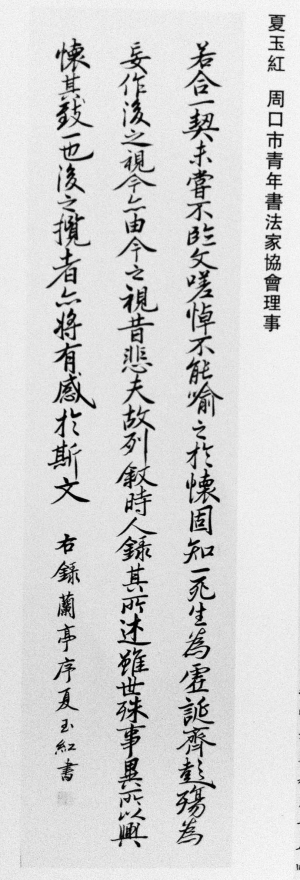 夏玉紅 周口市青年書法家協會理事
若合一契未嘗不臨文嗟悼不能喻之於懷固知一死生為虛誕齊彭殤為
妄作後之視今亦由今之視昔悲夫故列敘時人錄其所述雖世殊事異所以興
懷其致一也後之攬者亦將有感於斯文
右錄蘭亭序夏玉紅書